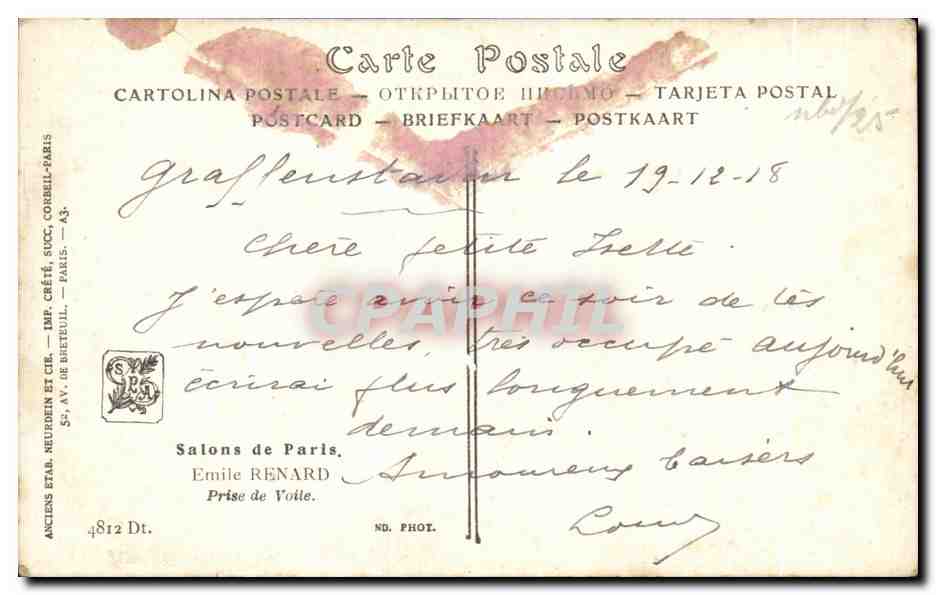 Carte Postale
CARTOLINA POSTALE — ОТКРЫТОЕ ПИСЬМО — TARJETA POSTAL
POSTCARD — BRIEFKAART — POSTKAART
le 19-12-18
Chère petite
J'espère avoir ce soir de tes
nouvelles, très occupé aujourd'hui
écrirai plus longuement
demain.
Amoureux baisers
CPAPHIL
Salons de Paris.
Emile RENARD
Prise de Voile.
4812 Dt.
ND. PHOT.
ANCIENS ETAB. NEURDEIN ET CIE. — IMP. CRÉTÉ, SUCC, CORBEIL-PARIS
52, AV. DE BRETEUIL. — PARIS. — A3.